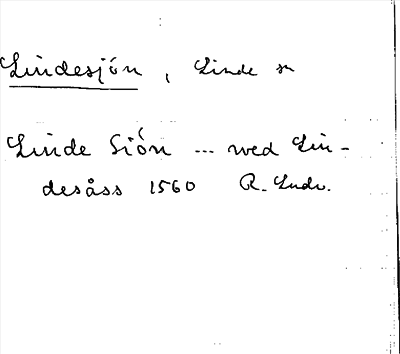 Lindesjön, Linde sn
Linde Siön ... wed Lin-
desåss 1560 R. Ludv.